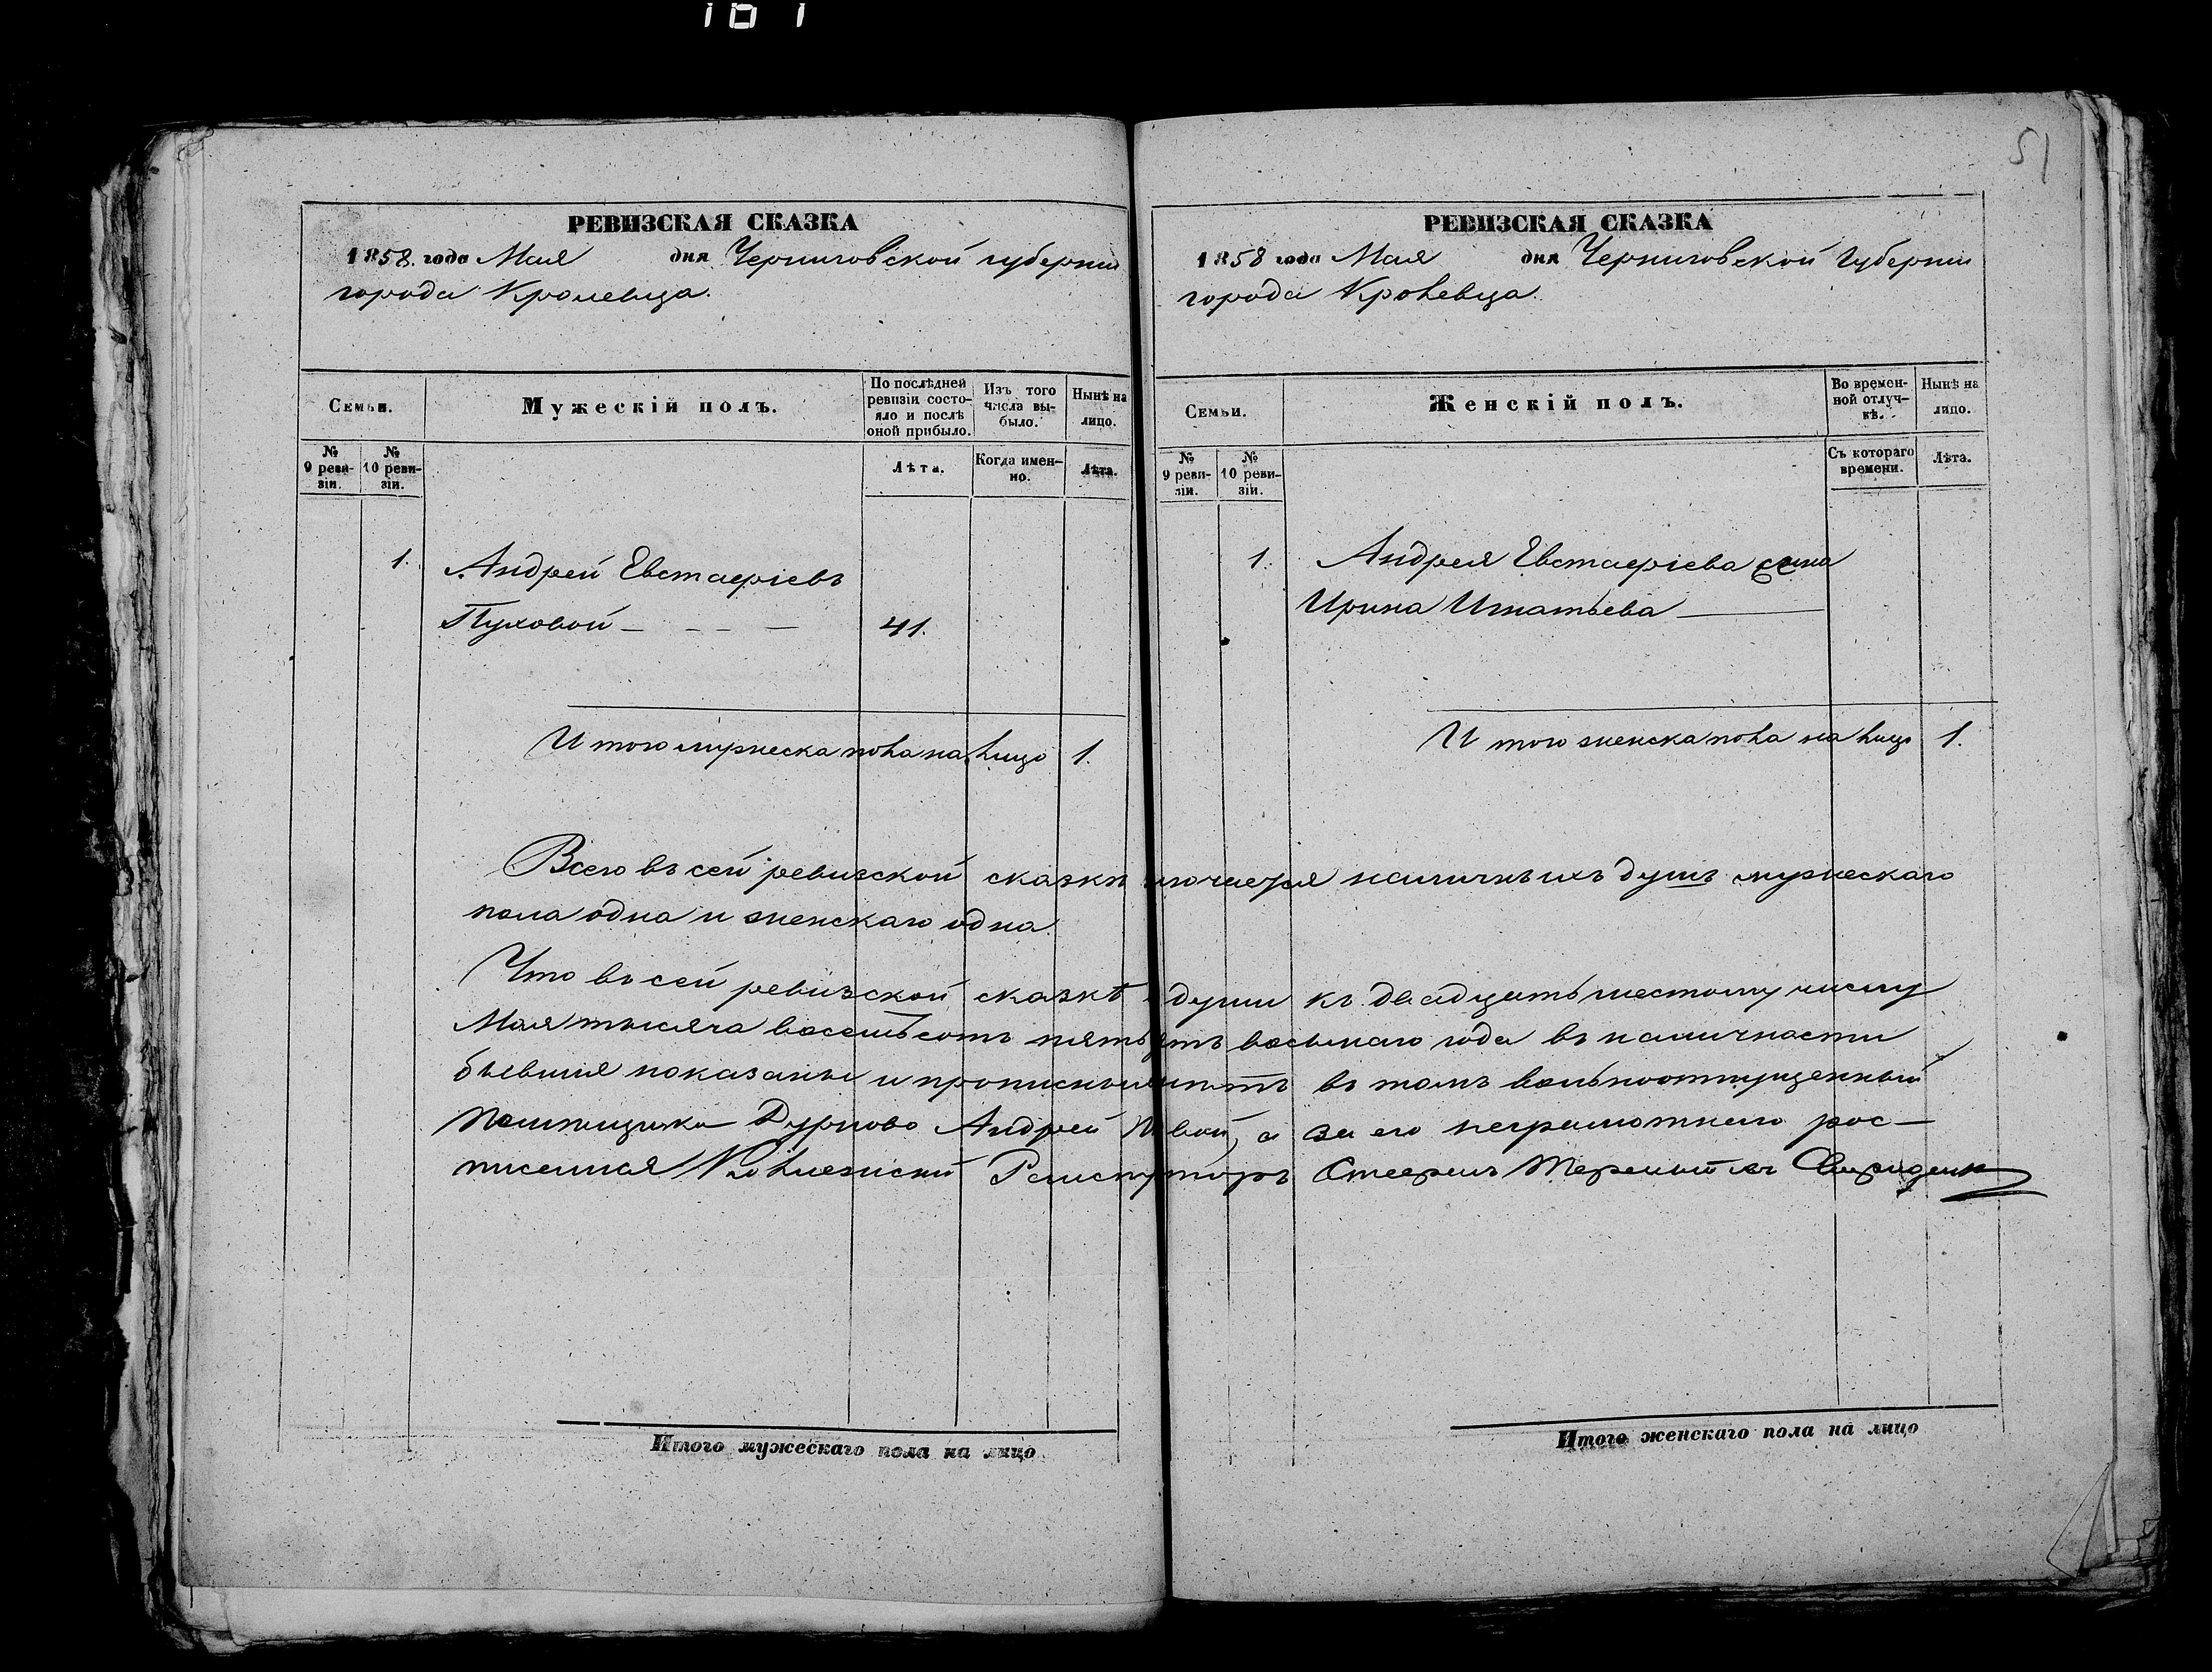 51
РЕВИЗСКАЯ СКАЗКА
1858 года Мая дня Черниговской губернии
города Кролевца.
Семьи.
Мужескій полъ.
По послѣдней ревизіи состояло и послѣ оной прибыло.
Изъ того числа выбыло.
Нынѣ на лицо.
№ 9 ревизіи.
№ 10 ревизіи.
Лѣта.
Когда именно.
Лѣта.
1. Андрей Евстафіевъ
Пуховой 41.
Итого мужеска пола на лицо 1.
РЕВИЗСКАЯ СКАЗКА
1858 года Мая дня Черниговской Губернии
города Кролевца.
Семьи.
Женскій полъ.
Во временной отлучкѣ.
Нынѣ на лицо.
№ 9 ревизіи.
№ 10 ревизіи.
Съ котораго времени.
Лѣта.
1. Андрея Евстафіева жена
Ирина Игнатьева
Итого женска пола на лицо 1.
Всего въ сей ревизской сказкѣ наличныхъ душъ мужескаго
пола одна и женскаго одна.
Что въ сей ревизской сказкѣ души къ двадцать шестому числу
Мая тысяча восемьсотъ восьмаго года въ наличности
бывшия показаны и въ томъ вольноотпущенный
помещика Дурново Андрей а за его неграмотнаго рос-
писался
Итого мужескаго пола на лицо
Итого женскаго пола на лицо